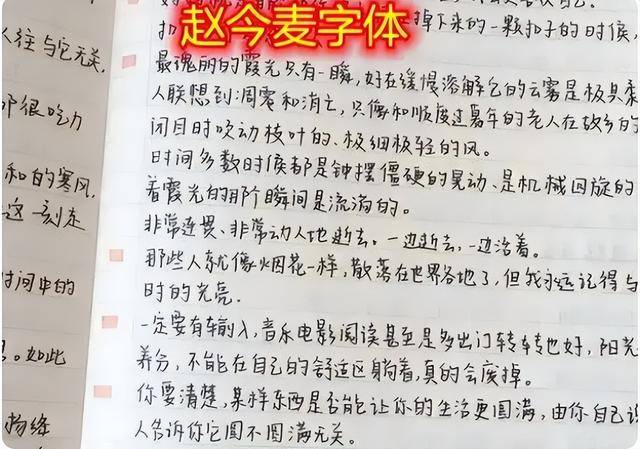 赵今麦字体
人往与它无关.
那很吃力
和的寒风.
这一刻走
时间中的
。如此
杨绛
掉下来的一颗扣子的时候,
最瑰丽的霞光只有一瞬,好在缓慢溶解它的云雾是极具柔
人联想到凋零和消亡,只像和顺度过暮年的老人在故乡的
闭目时吹动枝叶的、极细极轻的风。
时间多数时候都是钟摆僵硬的晃动、是机械回旋的
着霞光的那个瞬间是流淌的。
非常连畏、非常动人地逝去。一边逝去,一边活着。
那些人就像烟花一样,散落在世界各地了,但我永远记得与
时的光亮.
一定要有输入,音乐电影阅读甚至是多出门转转也好,阳光
养分,不能在自己的舒适区躺着,真的会废掉。
你要清楚,某样东西是否能让你的生活更圆满,由你自己
人告诉你它圆不圆满无关。